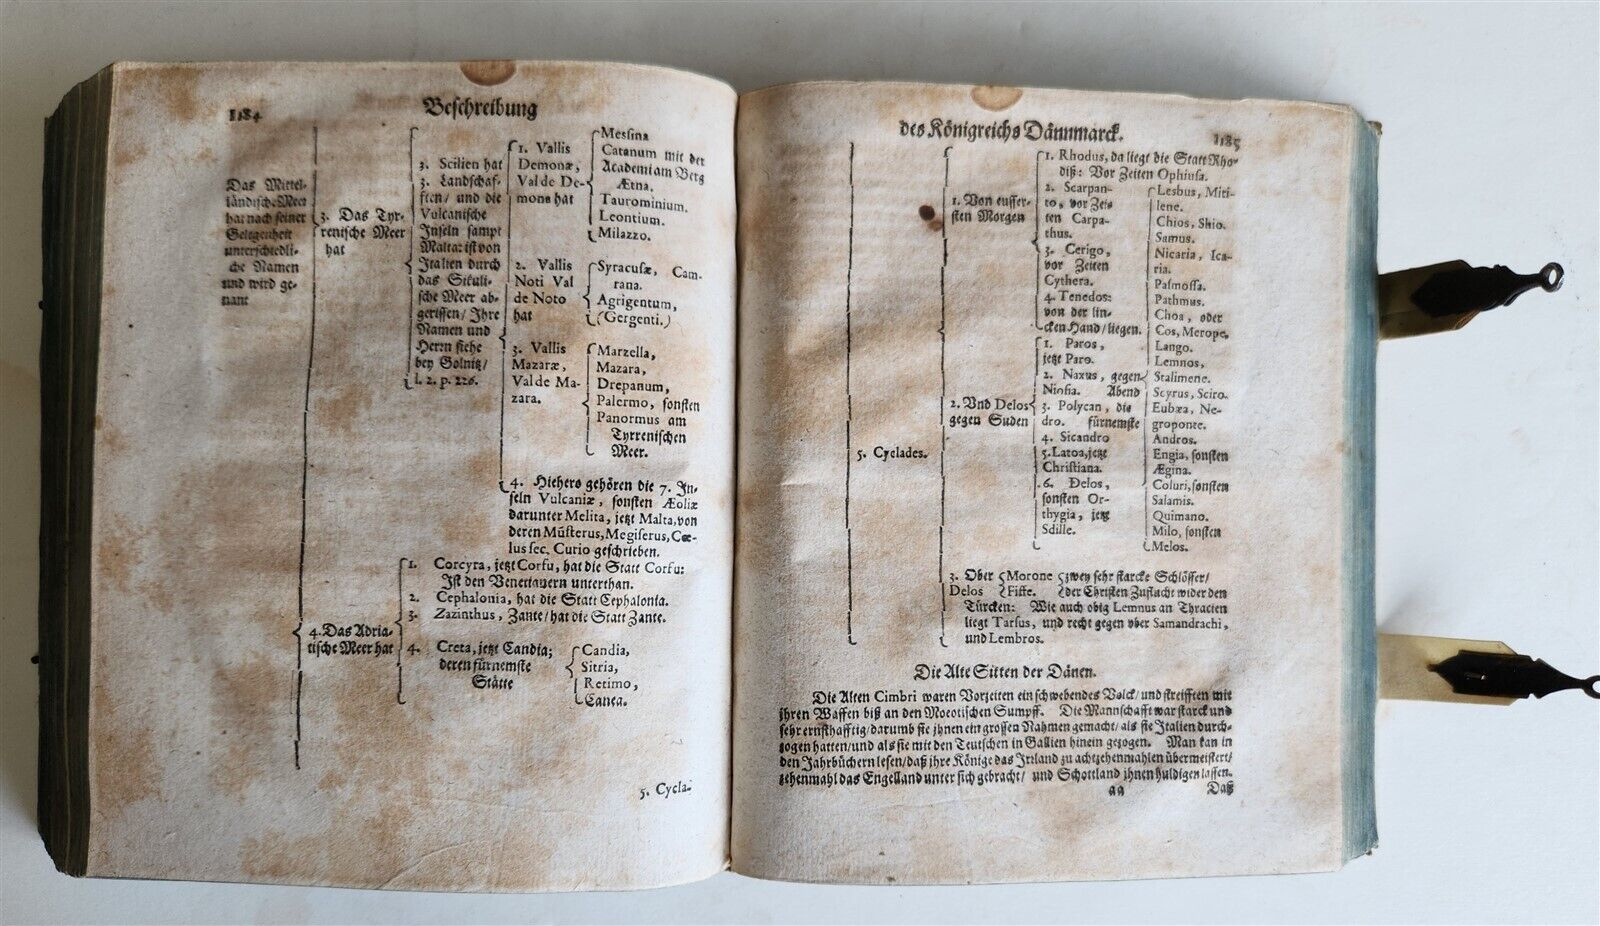 1184
Beschreibung
Das Mittel-
ländische Meer
hat nach seiner
Gelegenheit
unterschiedli-
che Namen
und wird ge-
nant
3. Das Tyr-
renische Meer
hat
3. Scilien hat
3. Landschaf-
ften/ und die
Vulcanische
Inseln sampt
Malta: ist von
Italien durch
das Sikuli-
sche Meer ab-
gerissen/ Ihre
Namen und
Herrn siehe
bey Golnitz/
l. 2. p. 226.
1. Vallis
Demonæ,
Val de De-
mona hat
Messina
Catanum mit der
Academiam Berg
Ætna.
Taurominium.
Leontium.
Milazzo.
2. Vallis
Noti Val
de Noto
hat
Syracusæ, Cam-
rana.
Agrigentum,
(Gergenti.)
3. Vallis
Mazaræ,
Val de Ma-
zara.
Marzella,
Mazara,
Drepanum,
Palermo, sonsten
Panormus am
Tyrrenischen
Meer.
4. Hiehero gehören die 7. In-
seln Vulcaniæ, sonsten Æoliæ
darunter Melita, jetzt Malta, von
deren Münsterus, Megiserus, Cœ-
lus sec. Curio geschrieben.
4. Das Adria-
tische Meer hat
1. Corcyra, jetzt Corfu, hat die Statt Corfu:
Ist den Venetianern unterthan.
2. Cephalonia, hat die Statt Cephalonia.
3. Zazinthus, Zante/ hat die Statt Zante.
4. Creta, jetzt Candia;
deren fürnemste
Stätte
Candia,
Sitria,
Retimo,
Canea.
5. Cycla-
des Königreichs Dännmarck.
1185
5. Cyclades.
1. Von eusser-
sten Morgen
1. Rhodus, da liegt die Statt Rho-
diß: Vor Zeiten Ophiusa.
2. Scarpan-
to, vor Zei-
ten Carpa-
thus.
3. Cerigo,
vor Zeiten
Cythera.
4. Tenedos:
von der lin-
cken Hand/ liegen.
2. Vnd Delos
gegen Suden
1. Paros,
jetzt Paro.
2. Naxus, gegen
Niosia. Abend
3. Polycan, die
dro. fürnemste
4. Sicandro
5. Latoa, jetzt
Christiana.
6. Delos,
sonsten Or-
thygia, jetzt
Sdille.
Lesbus, Miti-
lene.
Chios, Shio.
Samus.
Nicaria, Ica-
ria.
Palmossa.
Pathmus.
Choa, oder
Cos, Merope.
Lango.
Lemnos,
Stalimene.
Scyrus, Sciro.
Eubæa, Ne-
groponte.
Andros.
Engia, sonsten
Ægina.
Coluri, sonsten
Salamis.
Quimano.
Milo, sonsten
Melos.
3. Ober Morone zwey sehr starcke Schlösser/
Delos Fiffe. der Christen Zuflucht wider den
Türcken: Wie auch obig Lemnus an Thracien
liegt Tarsus, und recht gegen vber Samandrachi,
und Lembros.
Die Alte Sitten der Dänen.
Die Alten Cimbri waren Vorzeiten ein schwebendes Volck/ und streifften mit
jhren Waffen biß an den Moeotischen Sumpff. Die Mannschafft war starck und
sehr ernsthafftig/ darumb sie jhnen ein grossen Nahmen gemacht/ als sie Italien durch-
zogen hatten/ und als sie mit den Teutschen in Gallien hinein gezogen. Man kan in
den Jahrbüchern lesen/ daß jhre Könige das Irrland zu achtzehenmahlen übermeistert/
zehenmahl das Engelland unter sich gebracht/ und Schottland jhnen huldigen lassen.
aa
Daß